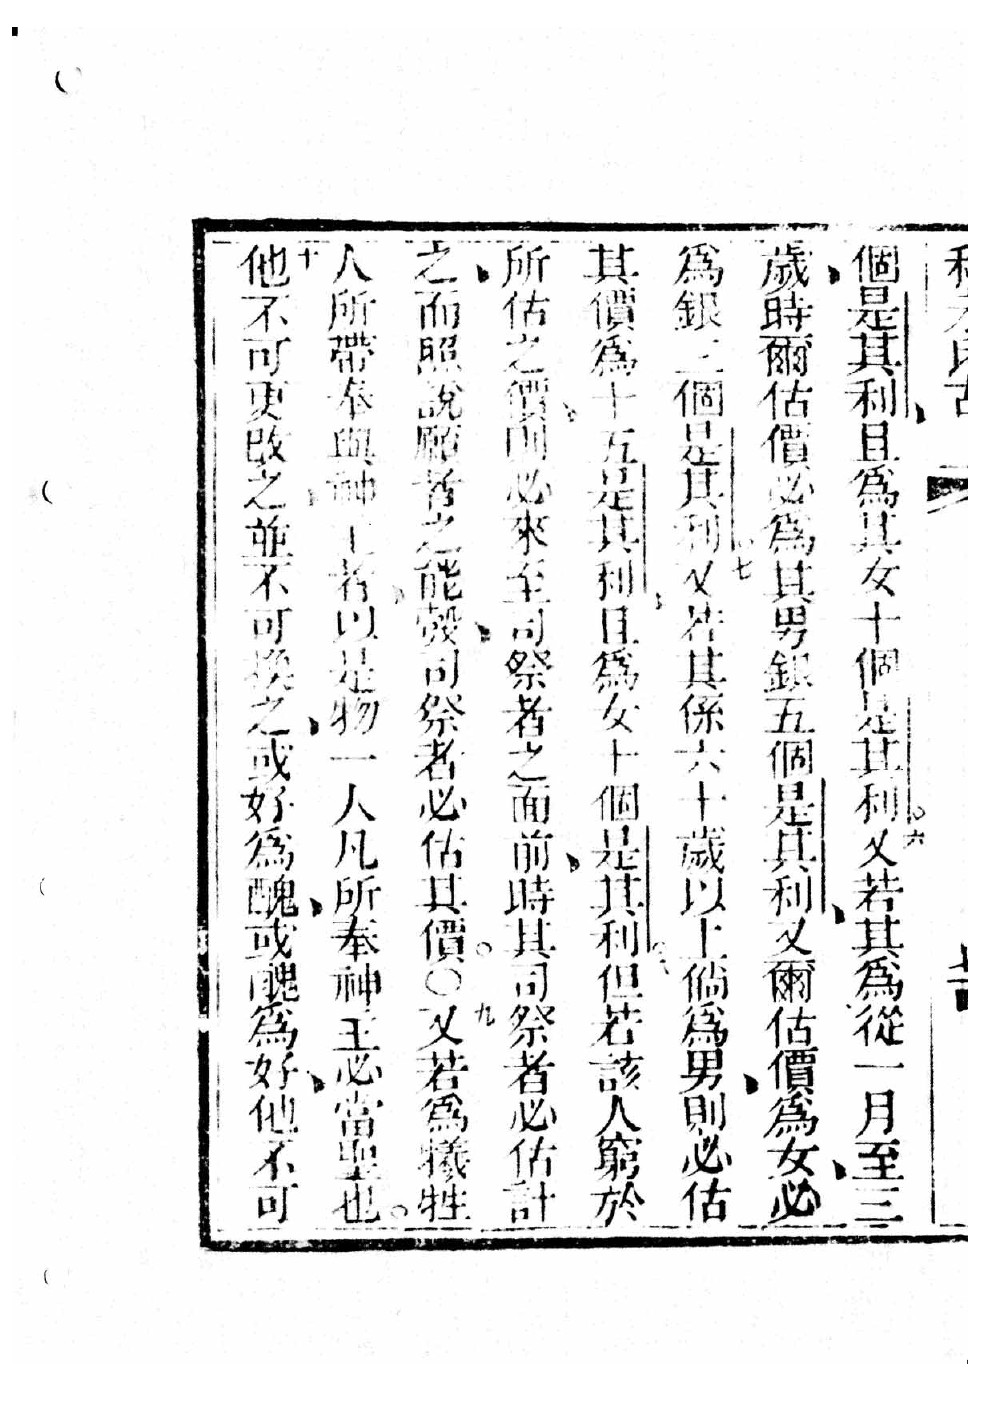 個是其利且爲其女十個是其利六又若其爲從一月至三
歲時爾估價必爲其男銀五個是其利又爾估價爲女必
爲銀三個是其利七又若其係六十歲以上倘爲男則必估
其價爲十五是其利且爲女十個是其利但八若該人窮於
所估之價則必來至司祭者之面前時其司祭者必估計
之而照說願者之能彀司祭者必估其價○九又若爲犧牲
人所帶奉與神主者以是物一人凡所奉神主必當聖也
十他不可更改之並不可換之或好爲醜或醜爲好他不可